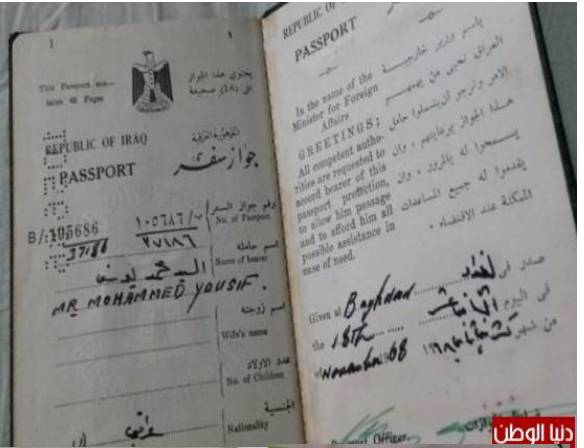 1
١
This Passport con-
tains 48 Pages
يحتوي هذا الجواز
على (٤٨) صحيفة
REPUBLIC OF IRAQ
الجمهورية العراقية
PASSPORT
جواز سفر
رقم جواز السفر
No. of Passport
B/-105686
١٠٥٦٨٦/ب
37186
٣٧١٨٦
اسم حامله
Name of bearer
السيد محمد يوسف
MR MOHAMMED YOUSIF.
اسم زوجته
Wife's name
عدد الاولاد
No. of Children
الجنسية
Nationality
عراقي
REPUBLIC OF
PASSPORT
In the name of the
Minister for Foreign
Affairs
GREETINGS;
All competent autho-
rities are requested to
accord bearer of this
passport protection,
to allow him passage
and to afford him all
possible assistance in
case of need.
باسم وزير خارجية
العراق نحيي من يهمهم
الامر ونرجو ان يشملوا حامل
هذا الجواز برعايتهم ، وان
يسمحوا له بالمرور ، وان
يقدموا له جميع المساعدات
الممكنة عند الاقتضاء .
Given at Baghdad
صدر في بغداد
the 18th
في اليوم
of November 1968
من شهر
Officer.
دنيا الوطن